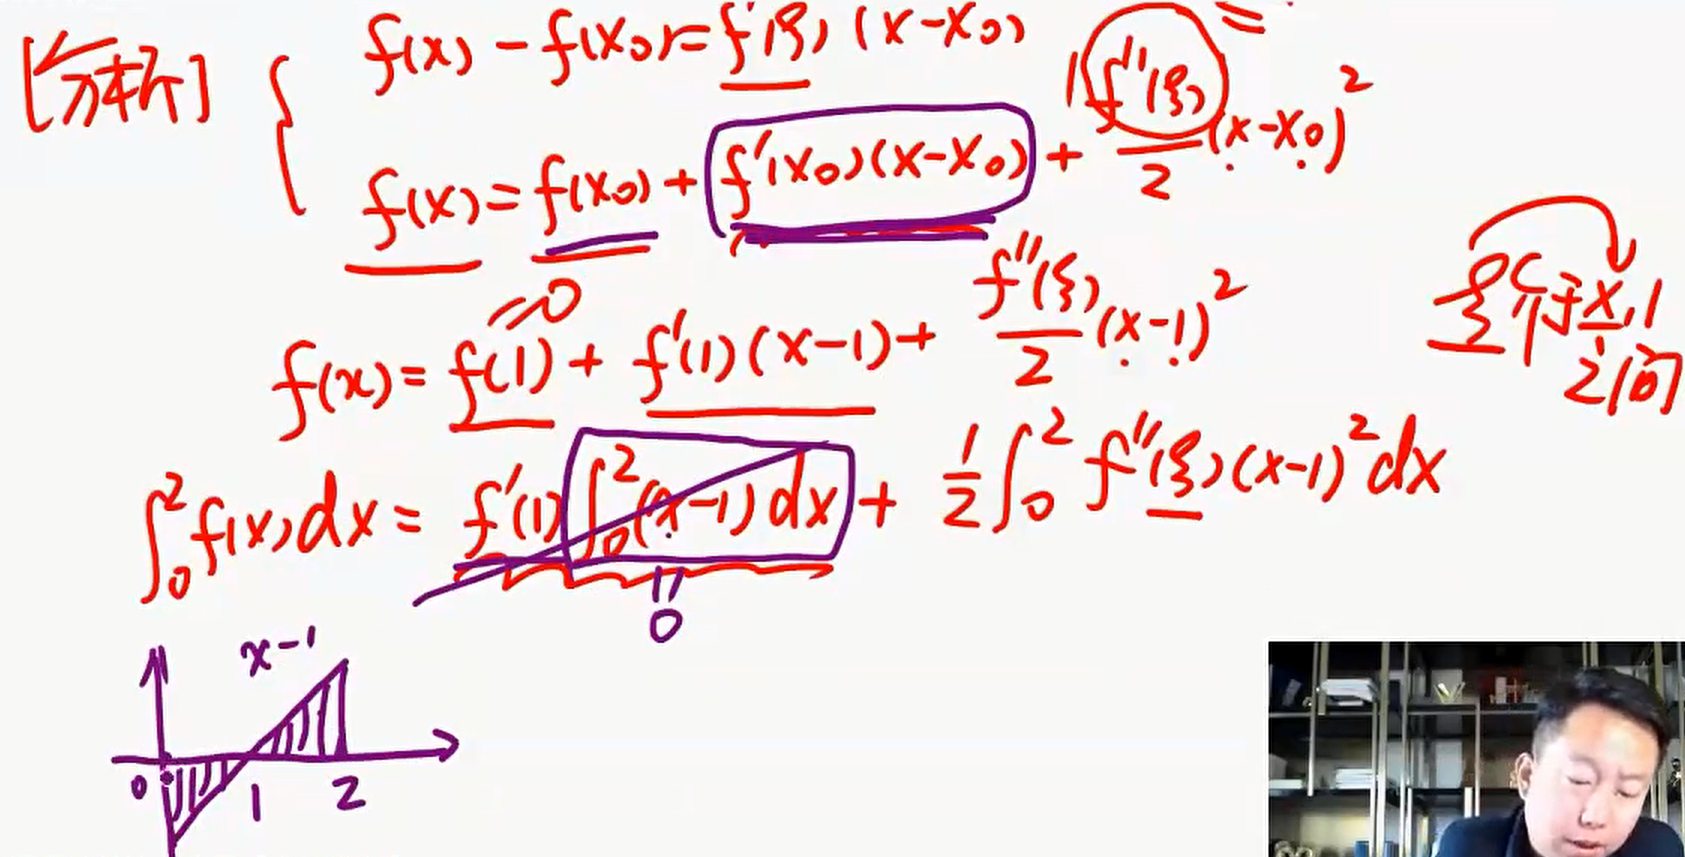 [分析] f(x) - f(x₀) = f'(ξ) (x-x₀)
f(x) = f(x₀) + f'(x₀)(x-x₀) + f''(ξ)/2 (x-x₀)²
=0
f(x) = f(1) + f'(1)(x-1) + f''(ξ)/2 (x-1)²
ξ介于x,1之间
∫₀² f(x)dx = f'(1) ∫₀² (x-1)dx + 1/2 ∫₀² f''(ξ)(x-1)²dx
=
0
x-1
0 1 2